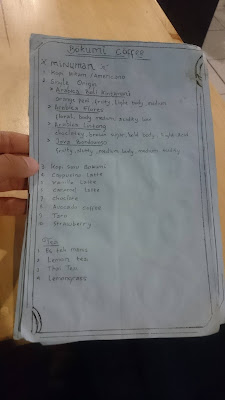 Bakumi Coffee
X MINUMAN X
Kopi Hitam / Americano
Single Origin
Arabika Bali Kintamani
orange peel, fruity, light body, medium
Arabika Flores
floral, body medium, acidity low
Arabika Lintong
chocolatey, brown sugar, bold body, light acid
Java Bondowoso
fruity, nutty, medium body, medium acidity
Kopi Susu Bakumi
Cappucino Latte
Vanilla Latte
Caramel Latte
Avocado coffee
Taro
Strawberry
Tea
1 Es teh manis
2 Lemon tea
3 Thai Tea
4 Lemongrass